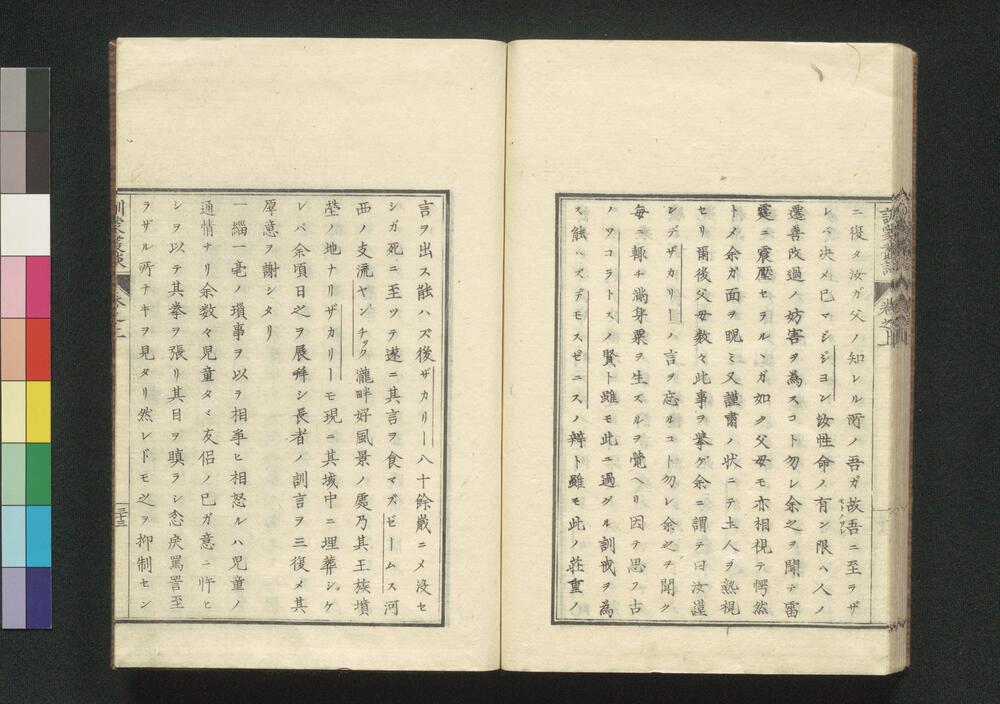 ニ復タ汝ガ父ノ知レル所ノ吾ガ故吾ニ至ラザ
モトノワレ
レバ决メ已マシジヨン汝性命ノ有ン限ハ人ノ
遷善改過ノ妨害ヲ為スコト勿レ余之ヲ聞テ雷
霆ニ震壓セラルヽガ如ク父母モ亦相視テ愕然
トメ余ガ面ヲ睨ミ又謹肅ノ状ニテ土人ヲ熟視
セリ爾後父母數々此事ヲ挙ゲ余ニ謂テ曰汝謹
ンデザカリーノ言ヲ忘ルコト勿レ余之ヲ聞ク
毎ニ輙チ満身粟ヲ生ズルヲ覺ヘリ因テ思フ古
ノソコラトスノ賢ト雖モ此ニ過グル訓戒ヲ為
ス能ハズデモスゼニスノ辨ト雖モ此ノ荘重ノ
言ヲ出ス能ハズ後ザカリー八十餘歳ニメ没セ
シガ死ニ至ツテ遂ニ其言ヲ食マズゼームス河
西ノ支流ヤンチック瀧畔好風景ノ處乃其王族墳
塋ノ地ナリザカリーモ現ニ其域中ニ埋葬シケ
レバ余頃日之ヲ展拜シ長者ノ訓言ヲ三復メ其
厚意ヲ謝シタリ
一緇一毫ノ瑣事ヲ以テ相爭ヒ相怒ルハ児童ノ
通情ナリ余数々見童タヾ友侶ノ已ガ意ニ忤ヒ
シヲ以テ其拳ヲ張リ其目ヲ瞋ラシ忿戾罵詈至
ラザル所ナキヲ見タリ然レドモ之ヲ抑制セン
三十三